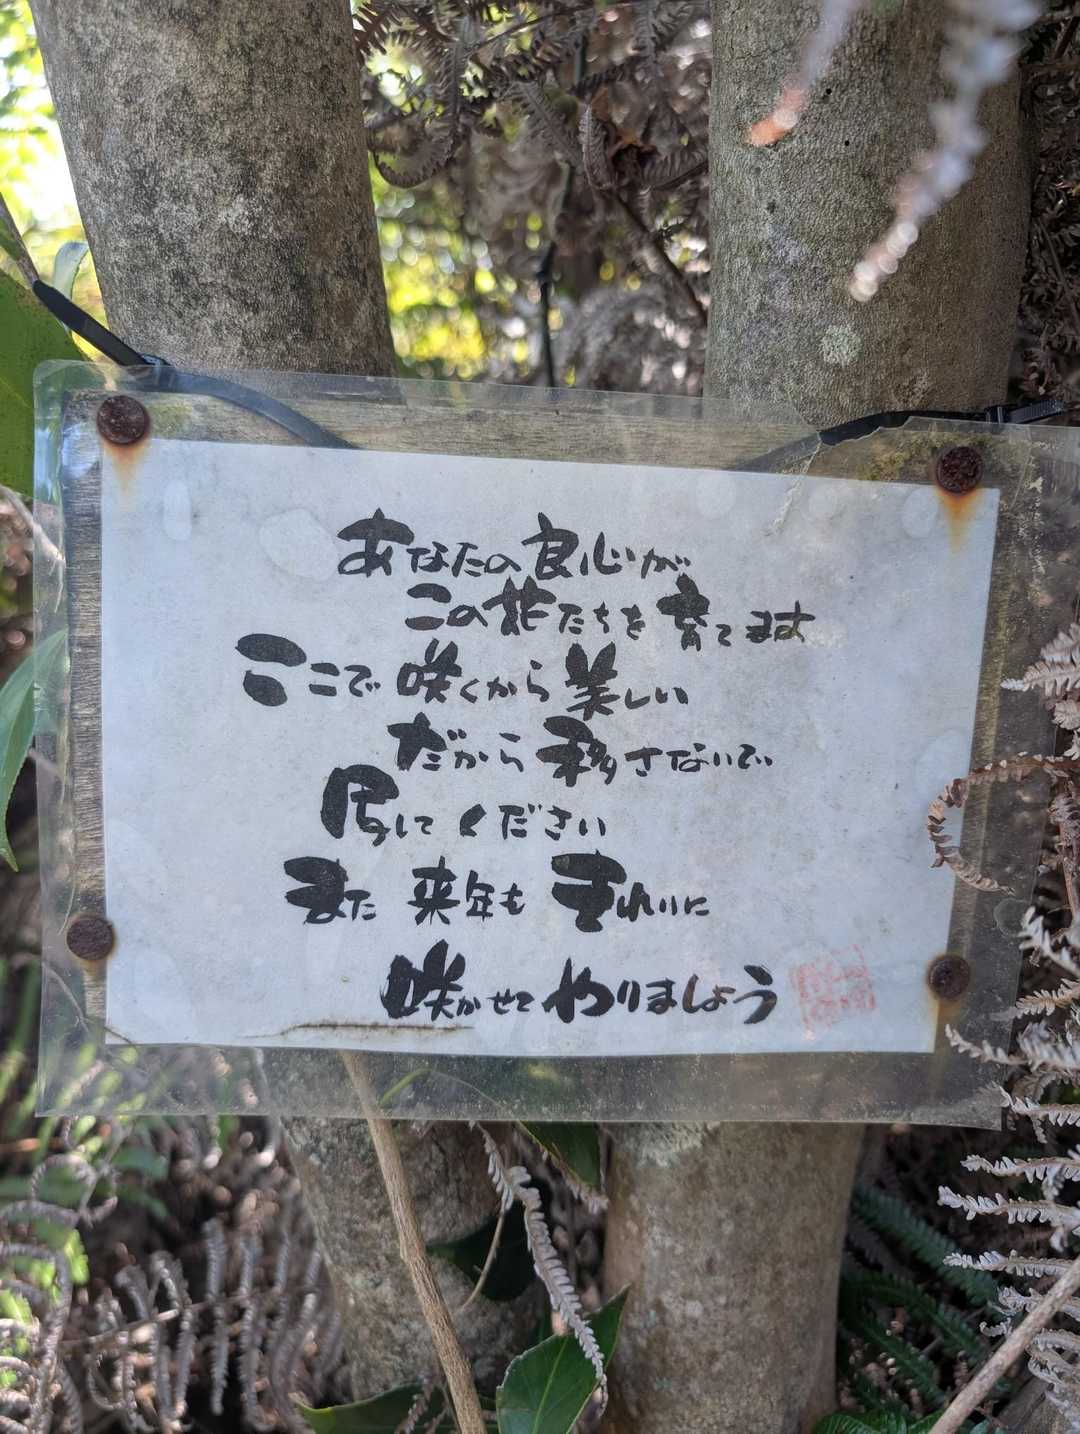 あなたの良心が
この花たちを育てます
ここで咲くから美しい
だから移さないで
写してください
また来年もきれいに
咲かせてやりましょう